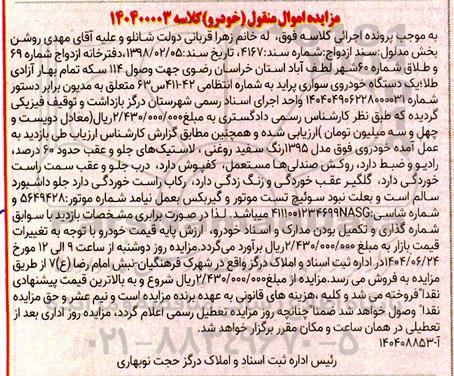 مزایده اموال منقول (خودرو) کلاسه ۱۴۰۴۰۰۰۰۳
به موجب پرونده اجرائی کلاسه فوق، له خانم زهرا قربانی دولت شانلو و علیه آقای مهدی روشن
بخش مدلول: سند ازدواج: شماره سند: ۴۱۶۷، تاریخ سند: ۱۳۹۸/۰۲/۰۵، دفترخانه ازدواج شماره ۶۹
و طلاق شماره ۶۰ شهر لطف آباد استان خراسان رضوی جهت وصول ۱۱۴ سکه تمام بهار آزادی
طلا؛ یک دستگاه خودروی سواری پراید به شماره انتظامی ۴۲-۴۱۱س۶۳ متعلق به مدیون برابر دستور
شماره ۱۴۰۴۰۴۹۰۶۲۲۸۰۰۰۰۳۱ واحد اجرای اسناد رسمی شهرستان درگز بازداشت و توقیف فیزیکی
گردیده که طبق نظر کارشناس رسمی دادگستری به مبلغ ۲/۴۳۰/۰۰۰/۰۰۰ ریال (معادل دویست و
چهل و سه میلیون تومان) ارزیابی شده و همچنین مطابق گزارش کارشناس ارزیاب طی بازدید به
عمل آمده خودروی فوق مدل ۱۳۹۵ رنگ سفید روغنی ، لاستیک‌های جلو و عقب حدود ۶۰ درصد،
رادیو و ضبط دارد، روکش صندلی‌ها مستعمل، کفپوش دارد، درب جلو و عقب سمت راست
خوردگی دارد، گلگیر عقب خوردگی و رنگ زدگی دارد، رکاب راست خوردگی دارد جلو داشبورد
سالم است و بعلت نبود سوئیچ تست موتور و گیربکس بعمل نیامد شماره موتور: ۵۶۴۹۴۲۸ و
شماره شاسی: NASG۴۱۱۰۰۱۲۳۴۶۹۹ میباشد. لذا در صورت برابری مشخصات بازدید با سوابق
شماره گذاری و تکمیل بودن مدارک و اسناد خودرو، ارزش پایه قیمت خودرو با توجه به تغییرات
قیمت بازار به مبلغ ۲/۴۳۰/۰۰۰/۰۰۰ ریال برآورد می‌گردد. مزایده روز دوشنبه از ساعت ۹ الی ۱۲ مورخ
۱۴۰۴/۰۶/۲۴ در اداره ثبت اسناد و املاک درگز واقع در شهرک فرهنگیان-نبش امام رضا (ع) ۷ از طریق
مزایده به فروش می رسد. مزایده از مبلغ ۲/۴۳۰/۰۰۰/۰۰۰ ریال شروع و به بالاترین قیمت پیشنهادی
نقدا" فروخته می شد و کلیه هزینه های قانونی به عهده برنده مزایده است و نیم عشر و حق مزایده
نقدا" وصول خواهد شد ضمنا" چنانچه روز مزایده تعطیل رسمی اعلام گردد، مزایده روز اداری بعد از
تعطیلی در همان ساعت و مکان مقرر برگزار خواهد شد.
آ-۱۴۰۴۰۸۸۵۳
رئیس اداره ثبت اسناد و املاک درگز حجت نوبهاری
۰۲۱-۸۸۳۴۹۶۷۰-۵